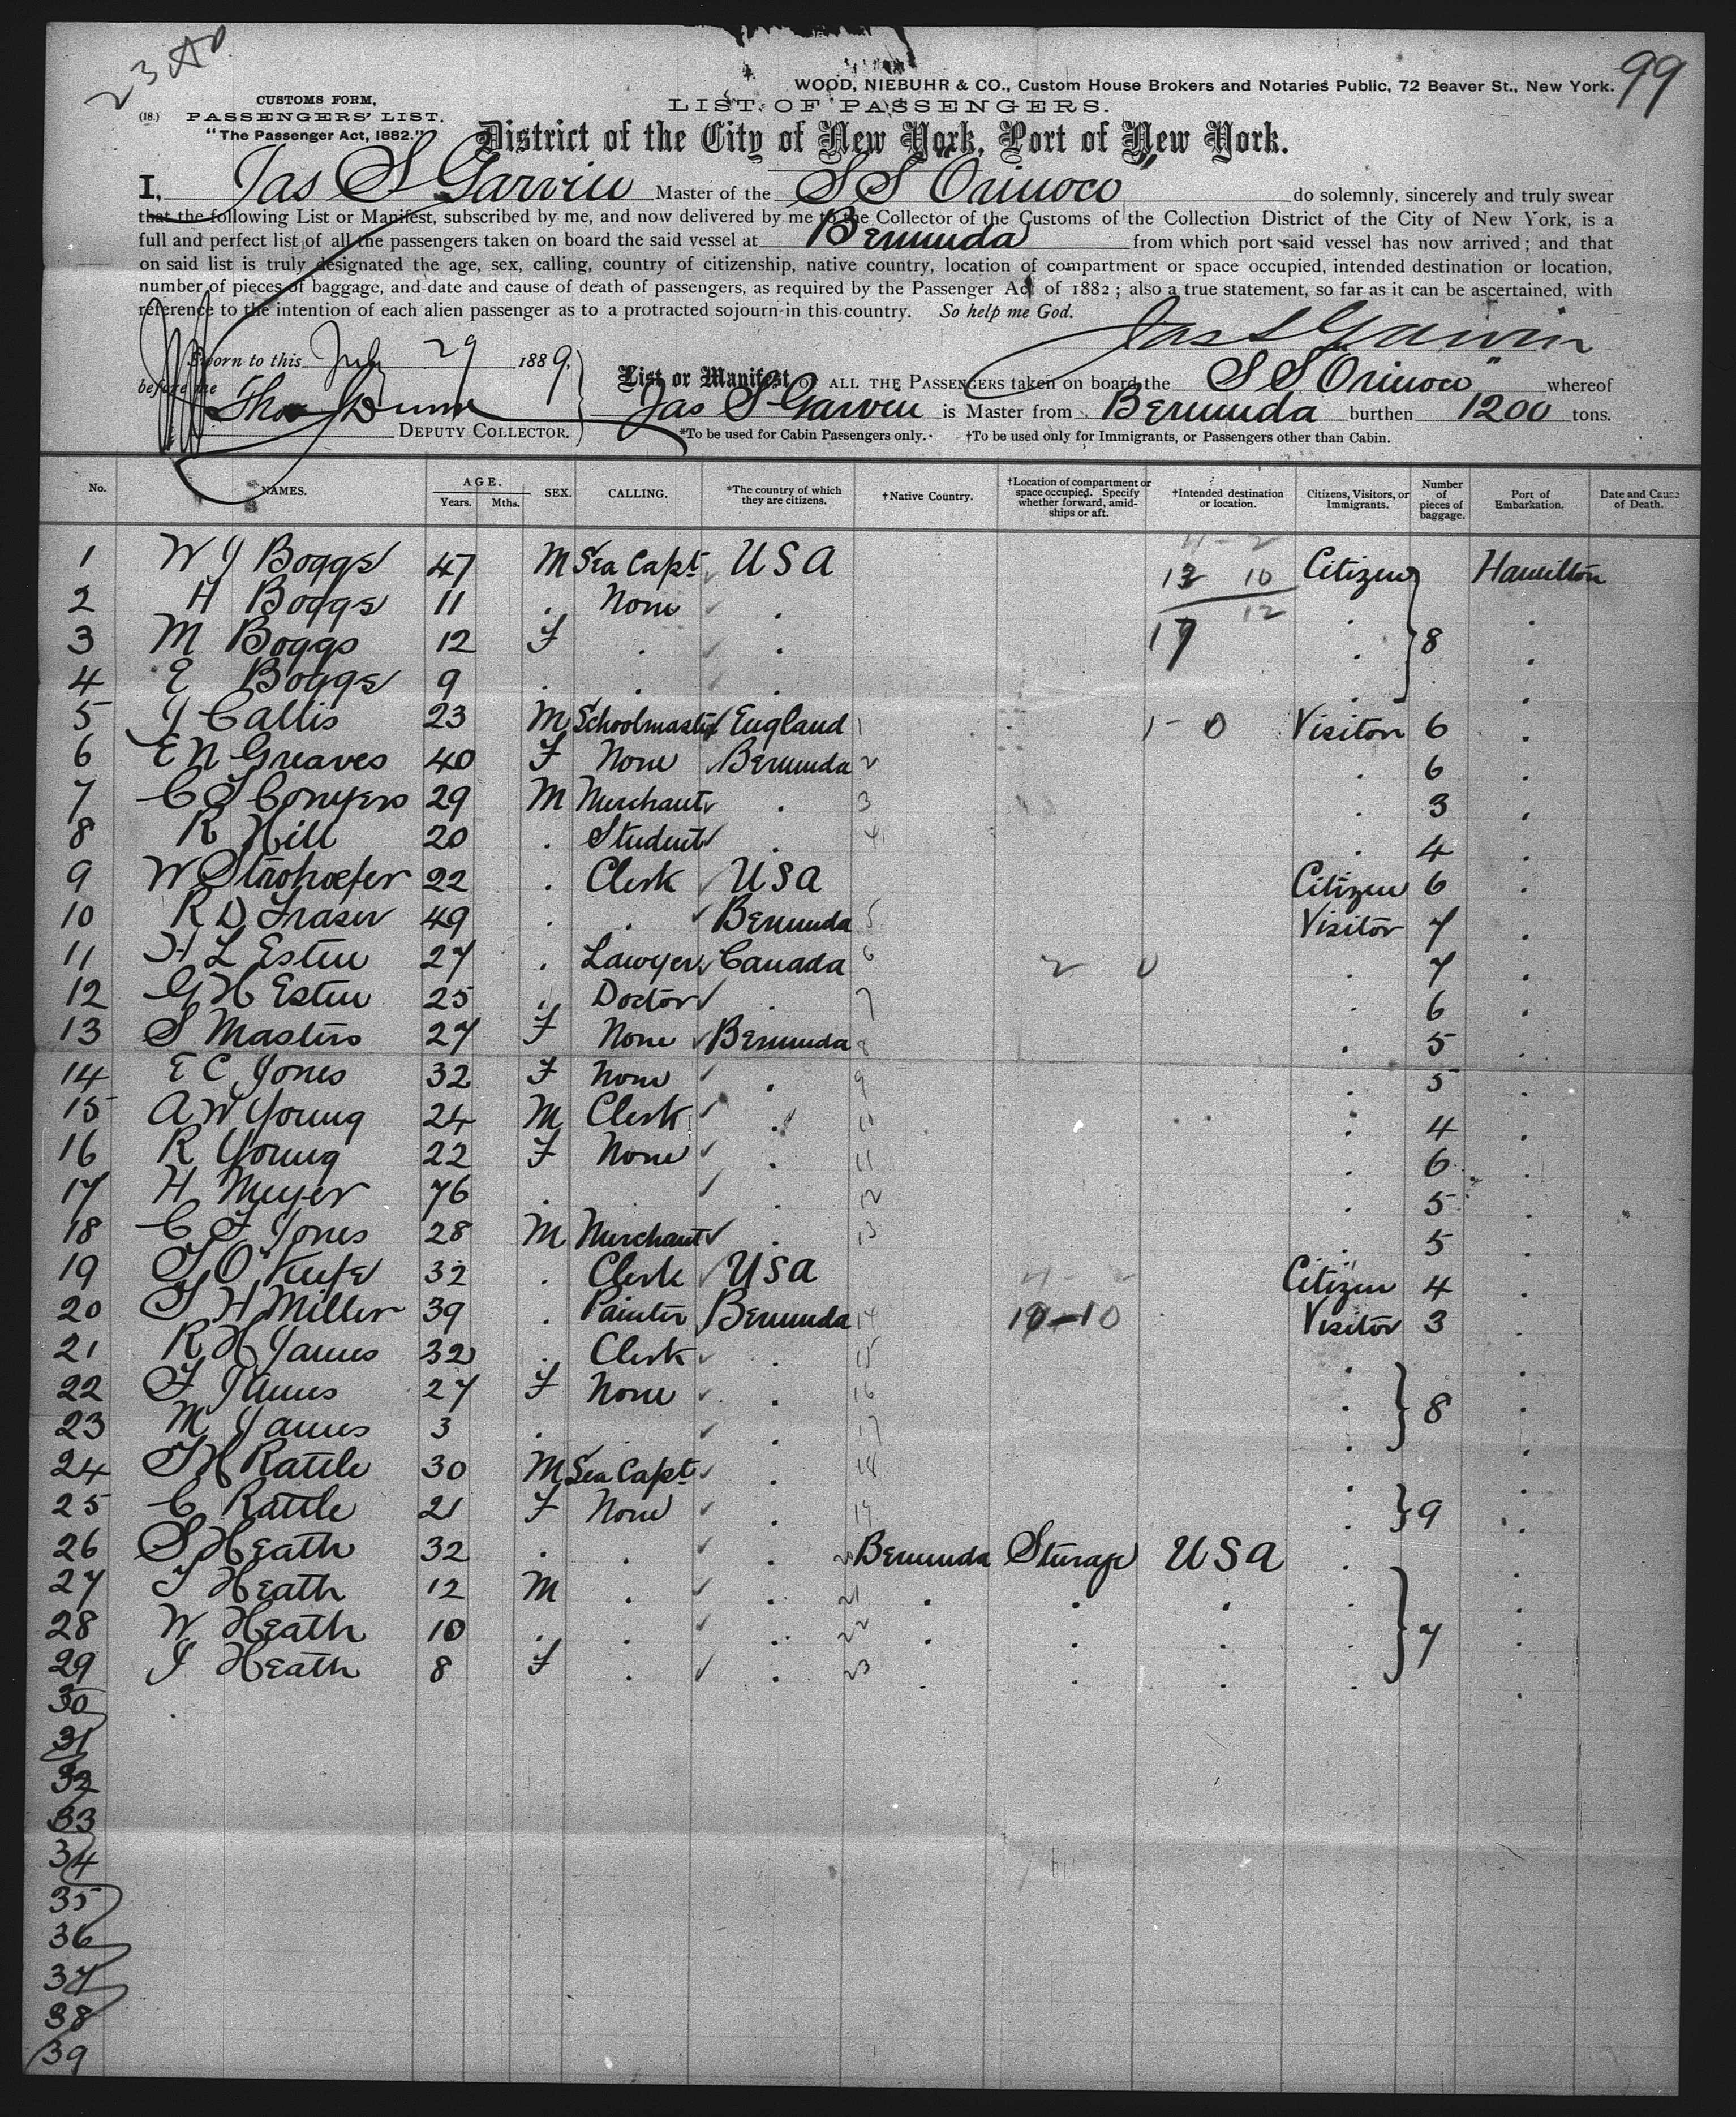 23 
99
WOOD, NIEBUHR & CO., Custom House Brokers and Notaries Public, 72 Beaver St., New York.
CUSTOMS FORM,
LIST OF PASSENGERS.
(18.) PASSENGERS' LIST.
"The Passenger Act, 1882."
District of the City of New York, Port of New York.
I, Jas S Garvin Master of the SS "Orinoco" do solemnly, sincerely and truly swear
that the following List or Manifest, subscribed by me, and now delivered by me to the Collector of the Customs of the Collection District of the City of New York, is a
full and perfect list of all the passengers taken on board the said vessel at Bermuda from which port said vessel has now arrived; and that
on said list is truly designated the age, sex, calling, country of citizenship, native country, location of compartment or space occupied, intended destination or location,
number of pieces of baggage, and date and cause of death of passengers, as required by the Passenger Act of 1882; also a true statement, so far as it can be ascertained, with
reference to the intention of each alien passenger as to a protracted sojourn in this country. So help me God.
Jas S Garvin
Sworn to this July 29 1889,
before me
Thos Dunn
DEPUTY COLLECTOR.
List or Manifest OF ALL THE PASSENGERS taken on board the SS Orinoco" whereof
Jas S Garvin is Master from Bermuda burthen 1200 tons.
*To be used for Cabin Passengers only. †To be used only for Immigrants, or Passengers other than Cabin.
No. NAMES. AGE. Years. Mths. SEX. CALLING. *The country of which they are citizens. †Native Country. †Location of compartment or space occupied. Specify whether forward, amidships or aft. †Intended destination or location. Citizens, Visitors, or Immigrants. Number of pieces of baggage. Port of Embarkation. Date and Cause of Death.
11 - 2
1 W J Boggs 47 M Sea Capt. USA 13 10 Citizen Hamilton
2 H Boggs 11 . None . 12 . .
3 M Boggs 12 F . . 17 . 8 .
4 E Boggs 9 . . . . .
5 J Callis 23 M Schoolmaster England 1 1 - 0 Visitor 6 .
6 E N Greaves 40 F None Bermuda 2 . 6 .
7 C S Conyers 29 M Merchant . 3 . 3 .
8 R Hill 20 . Student . 4 . 4 .
9 W Strohoefer 22 . Clerk USA Citizen 6 .
10 R D Fraser 49 . . Bermuda 5 Visitor 7 .
11 H L Esten 27 . Lawyer Canada 6 2 0 . 7 .
12 G H Esten 25 . Doctor . 7 . 6 .
13 S Masters 27 F None Bermuda 8 . 5 .
14 E C Jones 32 F None . 9 . 5 .
15 A W Young 24 M Clerk . 10 . 4 .
16 R Young 22 F None . 11 . 6 .
17 H Meyer 76 . . 12 . 5 .
18 C F Jones 28 M Merchant . 13 . 5 .
19 T O'Keefe 32 . Clerk USA Citizen 4 .
20 T H Miller 39 . Painter Bermuda 14 10-10 Visitor 3 .
21 R H James 32 . Clerk . 15 . .
22 F James 27 F None . 16 . 8 .
23 M James 3 . . . 17 . .
24 T H Rattle 30 M Sea Capt. . 18 . .
25 C Rattle 21 F None . 19 . 9 .
26 S Heath 32 . . . 20 Bermuda Sterage USA . .
27 T Heath 12 M . . 21 . . . . .
28 W Heath 10 . . . 22 . . . . 7 .
29 J Heath 8 F . . 23 . . . . .
30
31
32
33
34
35
36
37
38
39